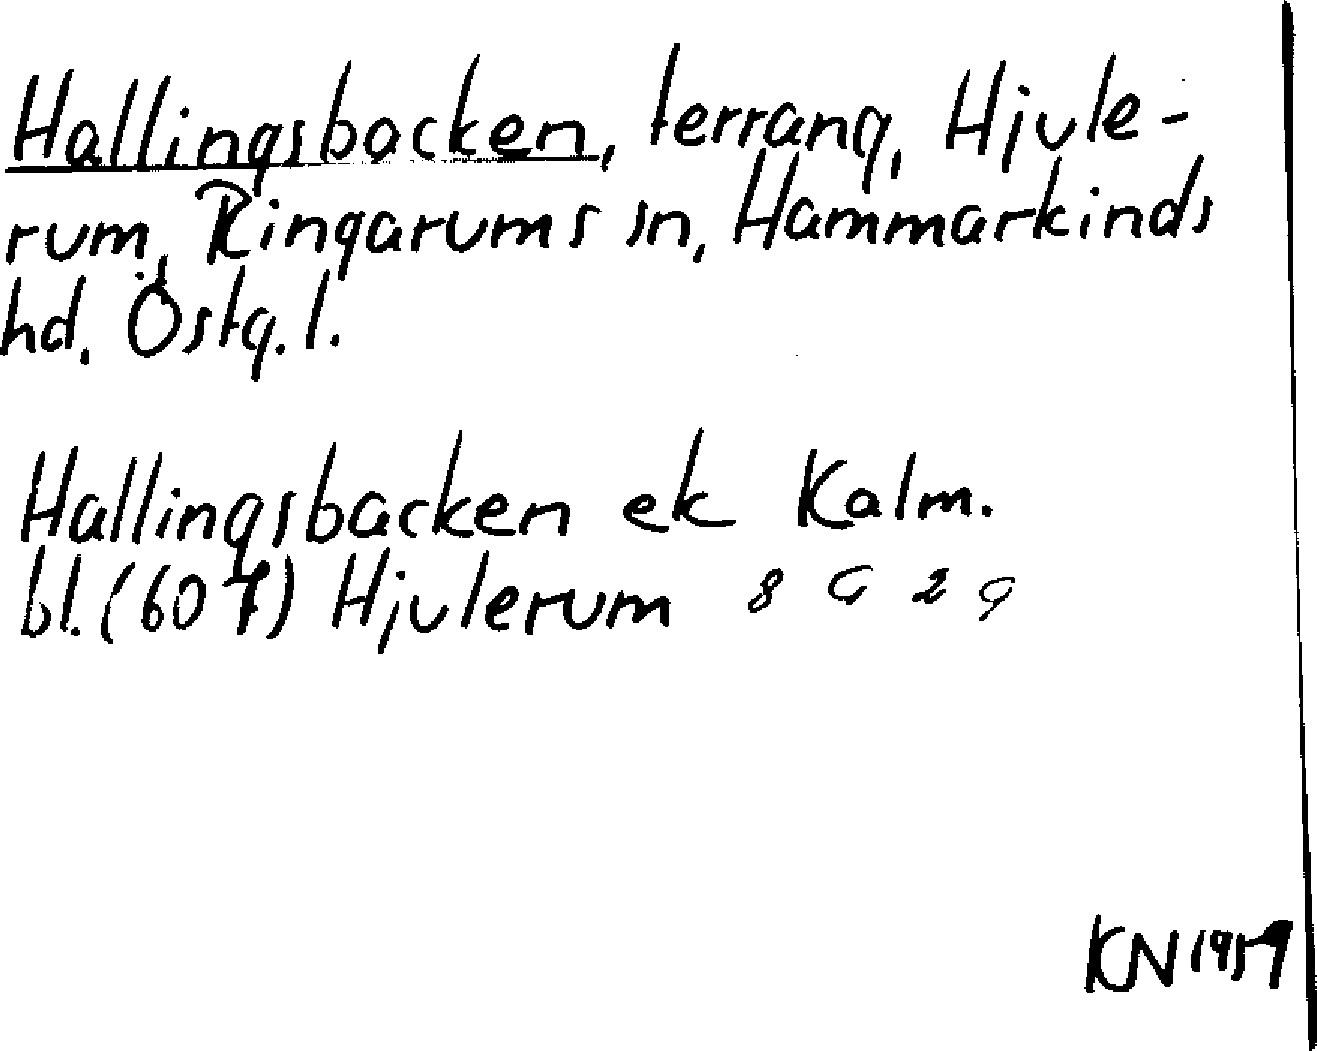 Hallingsbacken, terräng, Hjule-
rum, Ringarums sn, Hammarkinds
hd. Östg. l.
Hallingsbacken ek Kalm.
bl. (607) Hjulerum 8 G 2 g
KN 1959